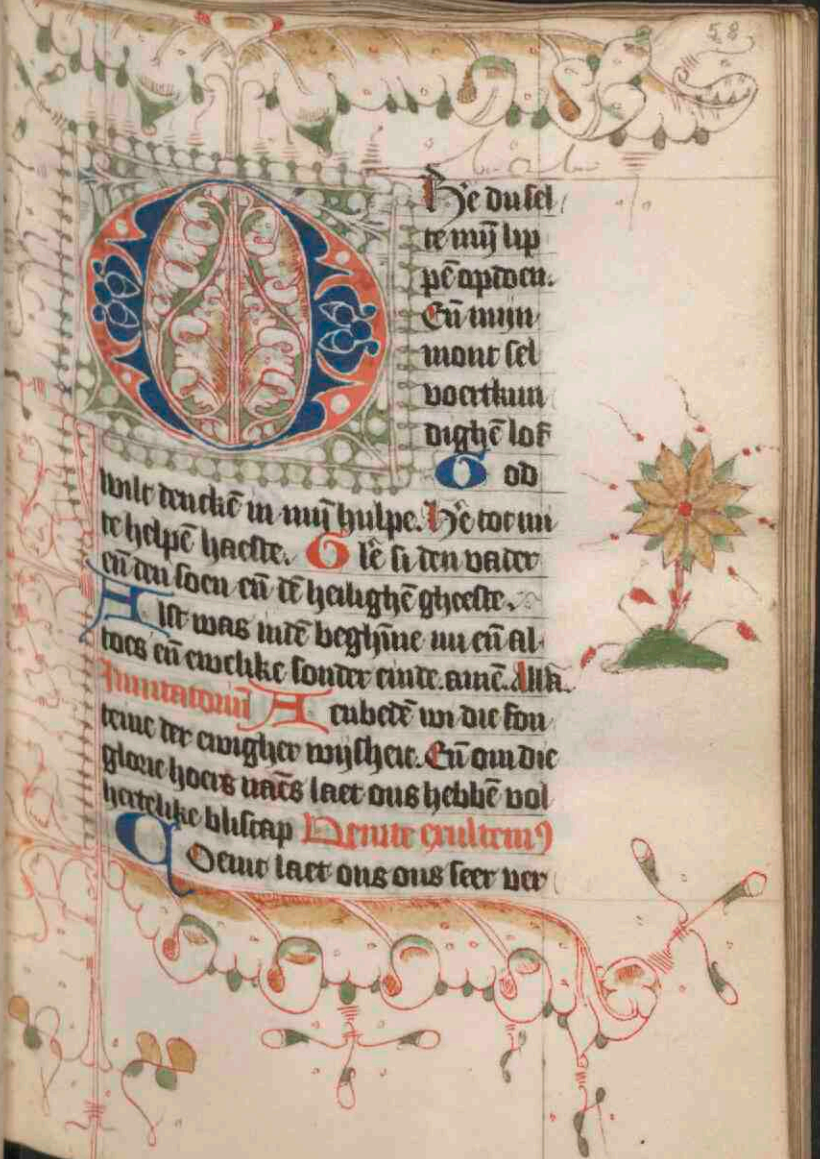 58
O
He͛e du sel
te mȳ lip
pē opdoen.
Eñ mijn
mont sel
voertkun
dighē lof
God
wilt denckē in mȳ hulpe. He͛e coemt mi
te helpē haeste. Gl͛ie si den vader
eñ den soen eñ dē heilighē gheeste.
Alst was indē beghīne nu eñ al
toes eñ ewelike sonder einde. amē. Alla.
Inuitatoriū Aenbedē wi die fon
teine der ewigher wijsheit. Eñ om die
glorie hoers naēs laet ons hebbē vol
hertelike bliscap Uenite exultemꝰ
Coemt laet ons ons seer ver